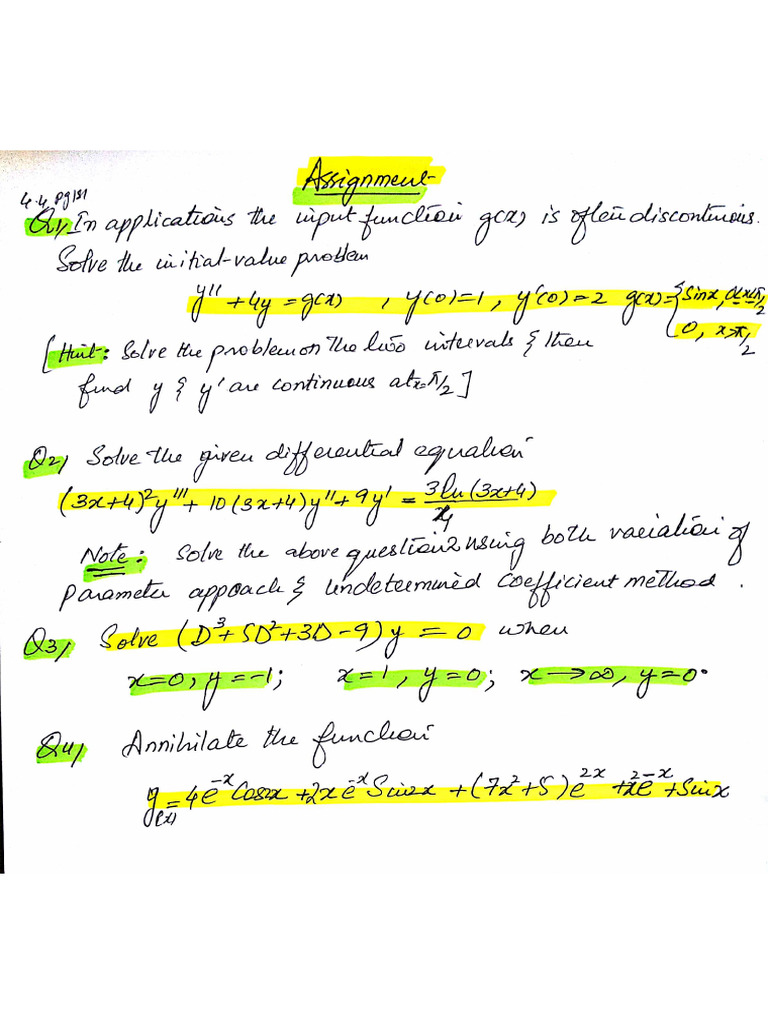 Assignment
4.4 pg 151
Q1, In applications the input function g(x) is often discontinuous.
Solve the initial-value problem
y'' + 4y = g(x) , y(0)=1, y'(0)=2 g(x)={ Sinx, 0≤x≤π/2
0, x>π/2
[Hint: Solve the problem on the two intervals & then
find y & y' are continuous at x=π/2]
Q2, Solve the given differential equation
(3x+4)²y''' + 10(3x+4)y'' + 9y' = 3ln(3x+4)/
Note: Solve the above question 2 using both variation of
Parameter appoach & Undetermined coefficient method.
Q3, Solve (D³+5D²+3D-9)y = 0 when
x=0, y=-1; x=1, y=0; x→∞, y=0.
Q4, Annihilate the function
g(x) = 4e^-x Cos2x + 2xe^-x Sin2x + (7x²+5)e^2x + x²e^-x + Sinx